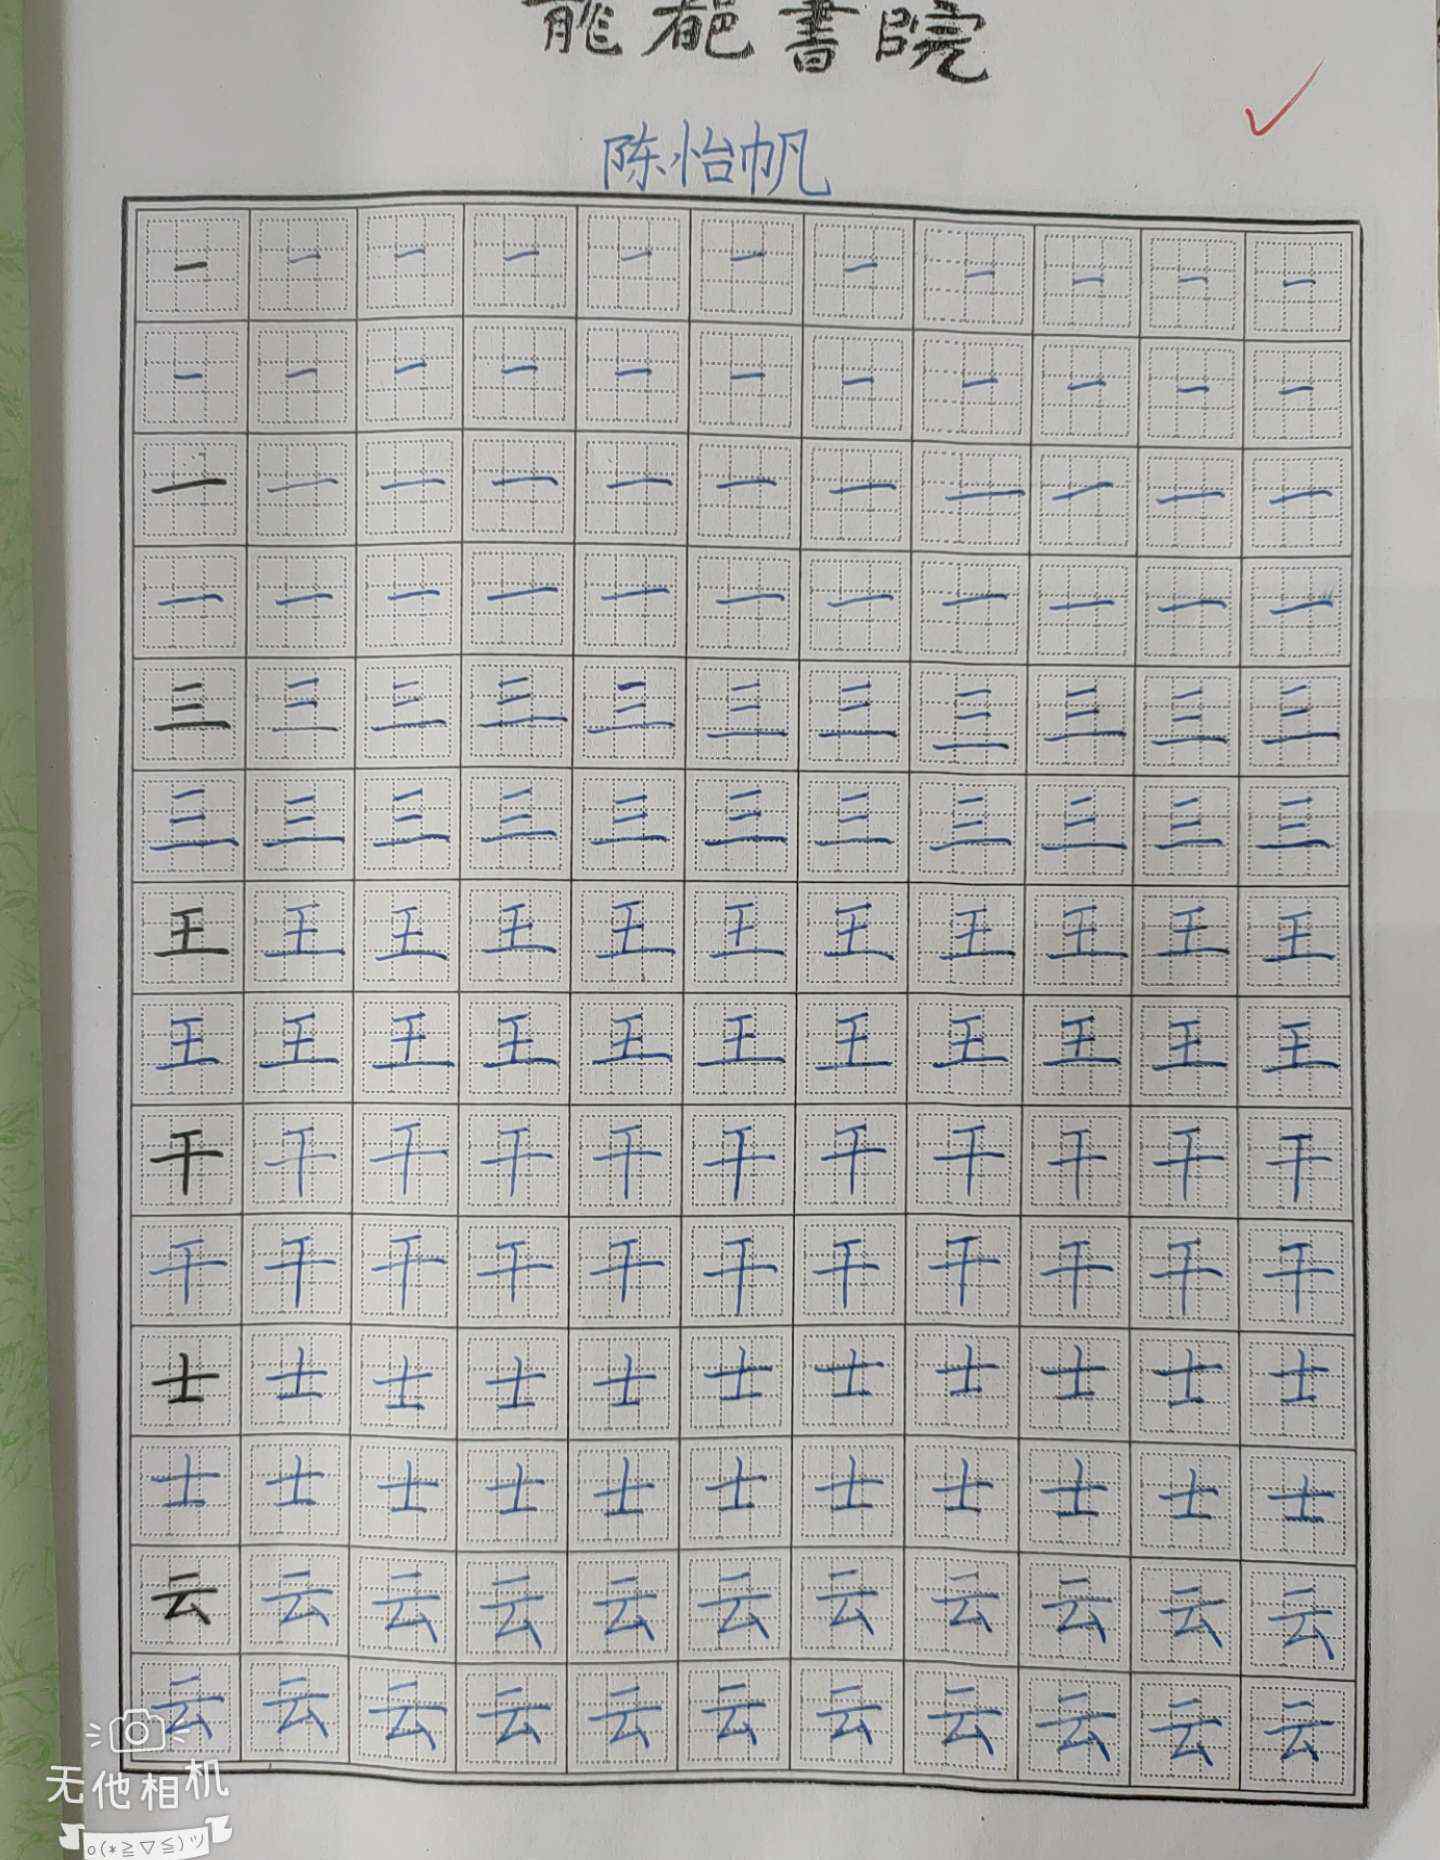 龍葩書院
陈怡帆
一一一一一一一一一一一
一一一一一一一一一一一
一一一一一一一一一一一
一一一一一一一一一一一
三三三三三三三三三三三
三三三三三三三三三三三
王王王王王王王王王王王
王王王王王王王王王王王
干干干干干干干干干干干
干干干干干干干干干干干
士士士士士士士士士士士
士士士士士士士士士士士
云云云云云云云云云云云
云云云云云云云云云云云
无他相机
o(*≧▽≦)ツ